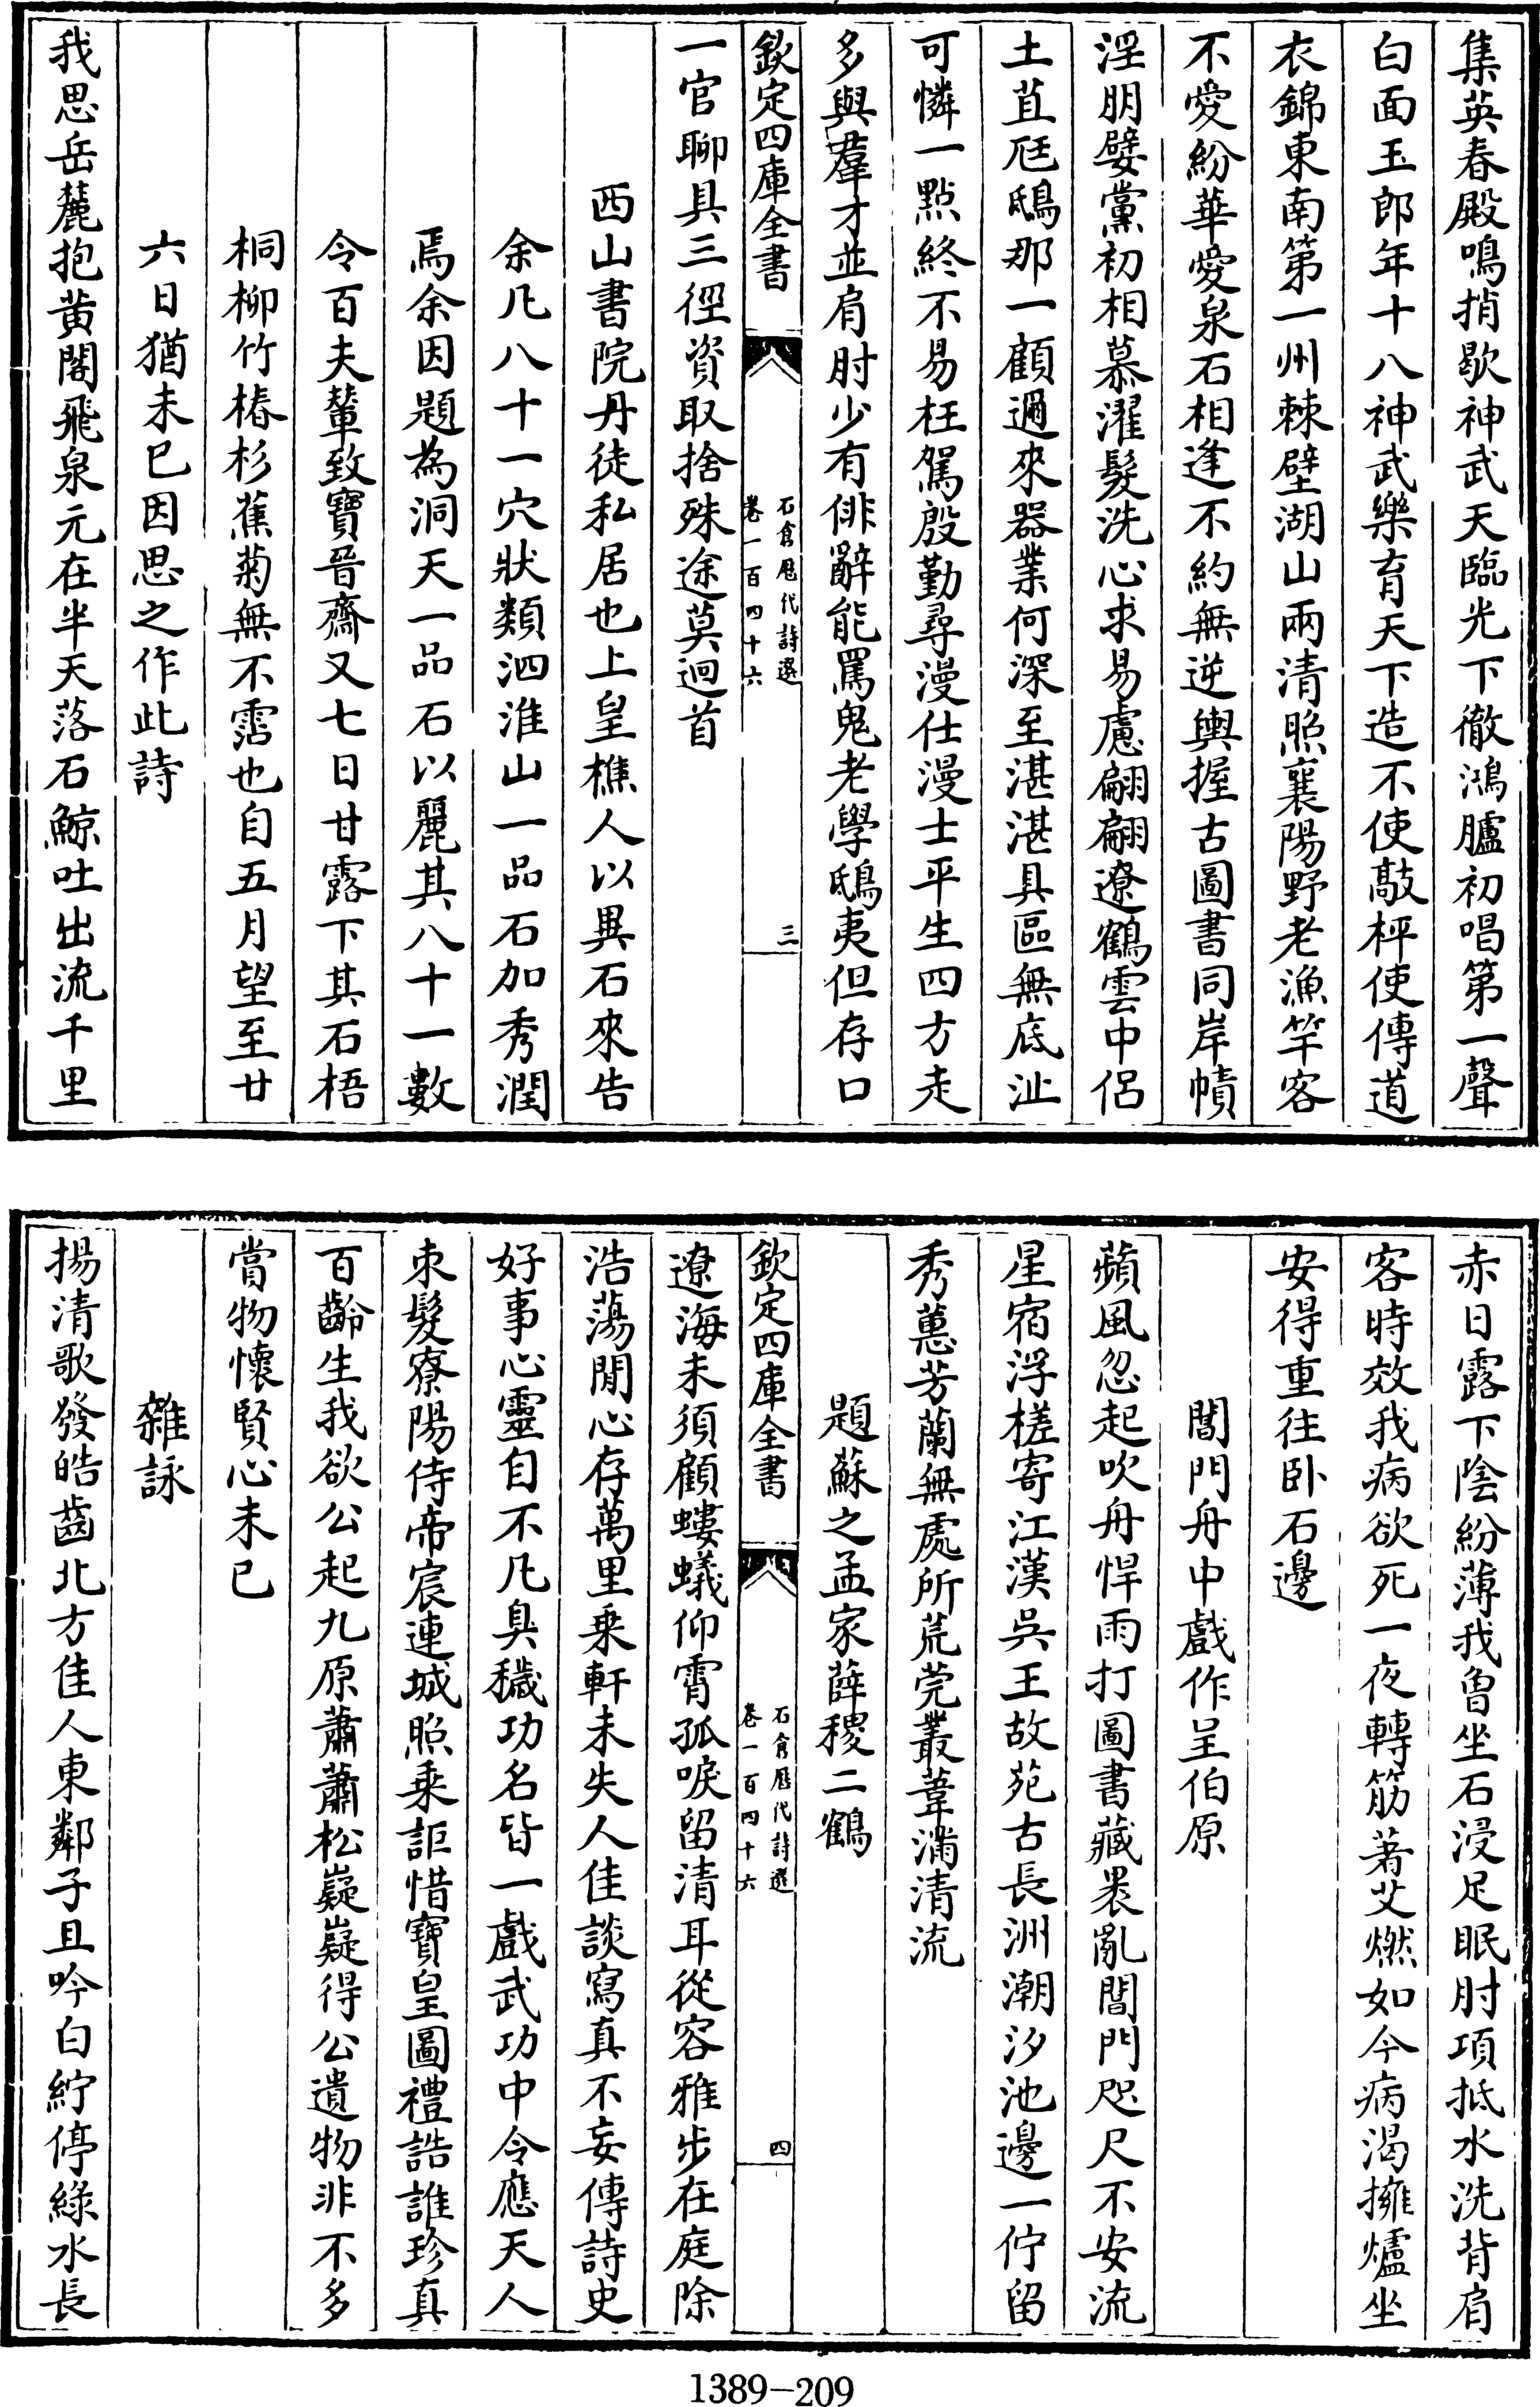 集英春殿鳴捎歇神武天臨光下徹鴻臚初唱第一聲
白面玉郎年十八神武樂育天下造不使敲枰使傳道
衣錦東南第一州棘壁湖山兩清照襄陽野老漁竿客
不愛紛華愛泉石相逢不約無逆輿握古圖書同岸幘
淫朋嬖黨初相慕濯髮洗心求易慮翩翩遼鶴雲中侶
土苴尫鴟那一顧邇來器業何深至湛湛具區無底沚
可憐一點終不易枉駕殷勤尋漫仕漫士平生四方走
多與羣才並肩肘少有俳辭能罵鬼老學鴟夷但存口
欽定四庫全書
石倉歷代詩選
卷一百四十六
三
一官聊具三徑資取捨殊途莫迴首
西山書院丹徒私居也上皇樵人以異石來告
余凡八十一穴狀類泗淮山一品石加秀潤
焉余因題為洞天一品石以麗其八十一數
令百夫輦致寶晉齋又七日甘露下其石梧
桐柳竹椿杉蕉菊無不霑也自五月望至廿
六日猶未已因思之作此詩
我思岳麓抱黃閣飛泉元在半天落石鯨吐出流千里
赤日露下陰紛薄我曾坐石浸足眠肘項抵水洗背肩
客時效我病欲死一夜轉筋著艾燃如今病渴擁爐坐
安得重往卧石邊
閶門舟中戲作呈伯原
蘋風忽起吹舟悍雨打圖書藏裹亂閶門咫尺不安流
星宿浮槎寄江漢吳王故苑古長洲潮汐池邊一佇留
秀蕙芳蘭無處所荒莞叢葦滿清流
題蘇之孟家薛稷二鶴
欽定四庫全書
石倉歷代詩選
卷一百四十六
四
遼海未須顧螻蟻仰霄孤唳留清耳從容雅步在庭除
浩蕩閒心存萬里乗軒未失人佳談寫真不妄傳詩史
好事心靈自不凡臭穢功名皆一戲武功中令應天人
束髮寮陽侍帝宸連城照乗詎惜寶皇圖禮誥誰珍真
百齡生我欲公起九原蕭蕭松嶷嶷得公遺物非不多
嘗物懷賢心未已
雜詠
揚清歌發皓齒北方佳人東鄰子且吟白紵停綠水長
1389-209